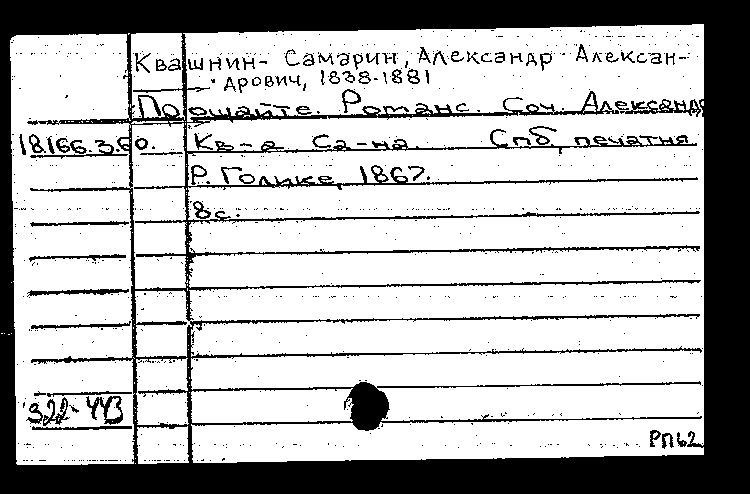 Квашнин- Самарин, Александр Алексан-
дрович, 1838-1881
Прощайте. Романс. Соч. Александра
18166.3.60. Кв-а Са-на. Спб, печатня
Р. Голике, 1867.
8с.
922-443
РП62